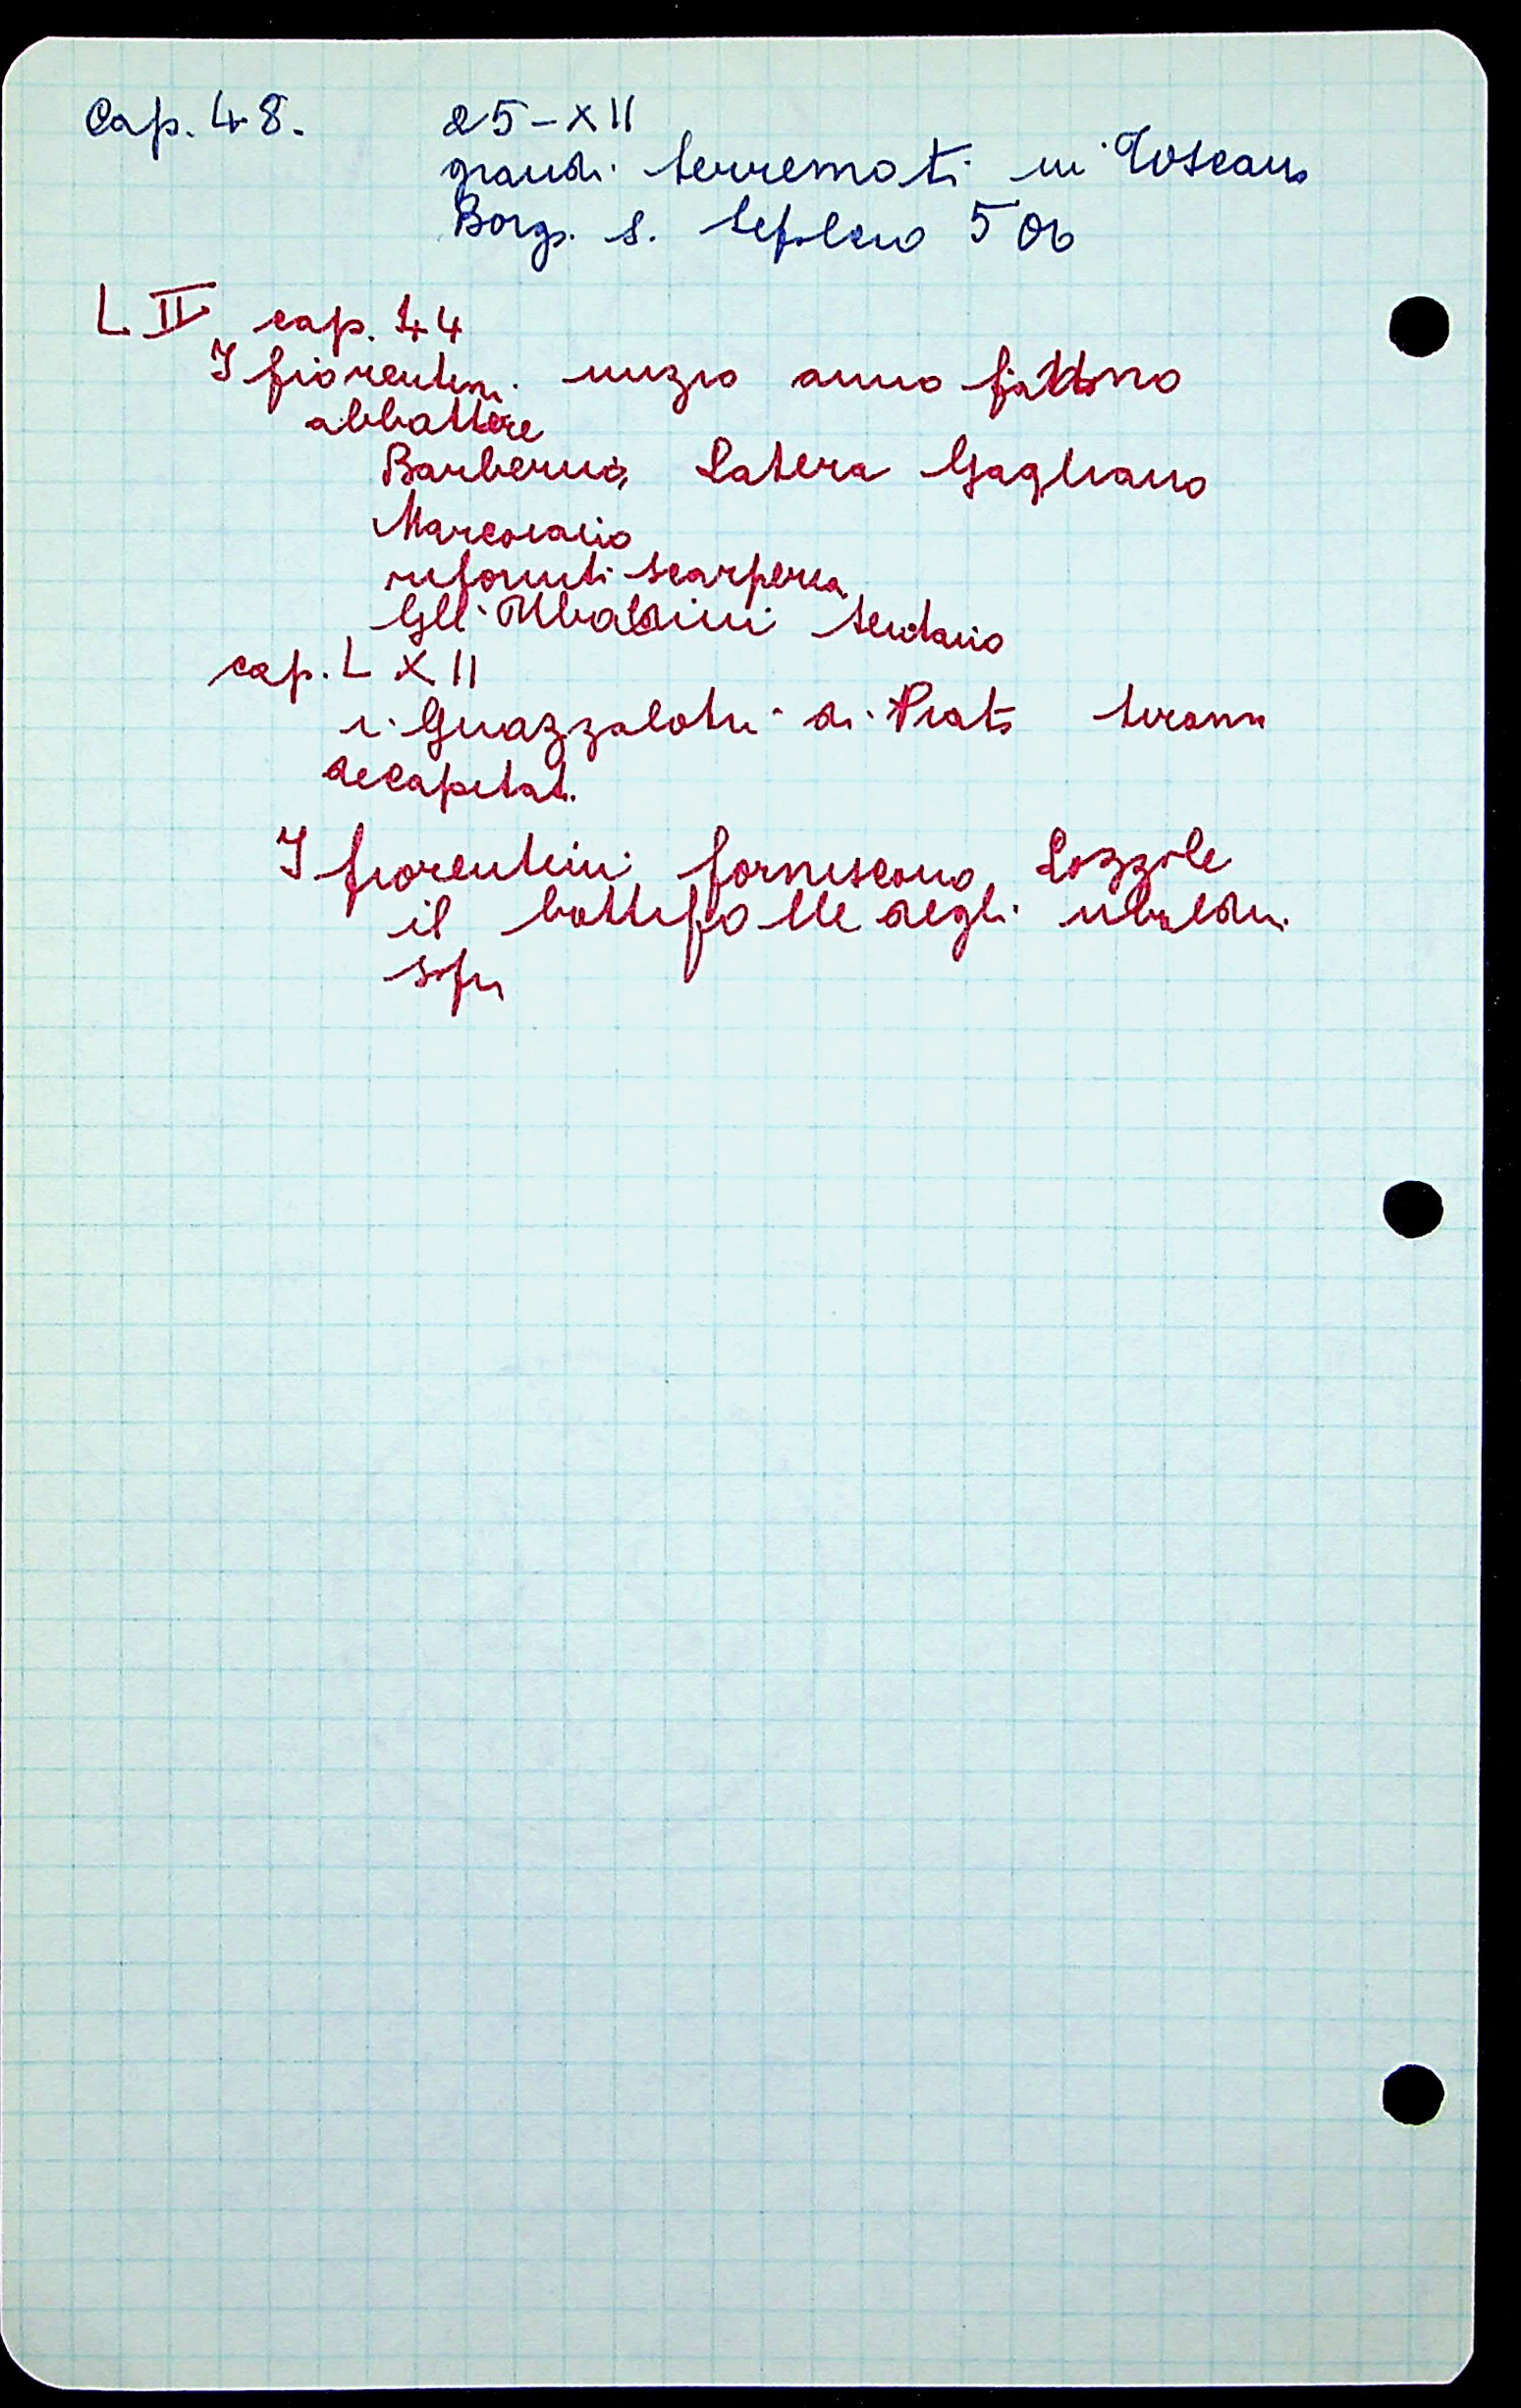 Cap. 48. 25-XII
grandi terremoti in Toscana
Borgo S. Sepolcro 500
L II cap. 44
I fiorentini inizio anno fanno
abbattere
Barberino, Latera Gagliano
Marcoiano
riforniti Scarperia
Gli Ubaldini tentano
cap. L X II
i Guazzalotri di Prato tiranni
decapitati
I fiorentini forniscono Lozzole
il battifolle degli ubaldini